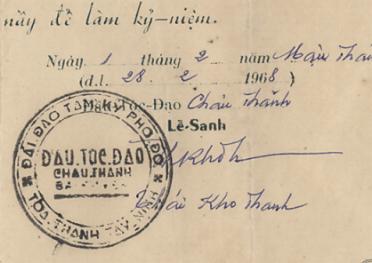 nầy để làm kỷ-niệm.
Ngày 1 tháng 2 năm Mậu Thân
(d.l. 28 2 1968)
Đầu-Tộc-Đạo Châu Thành
Lễ-Sanh
Thái Kho Thanh
ĐẠI ĐẠO TAM KỲ PHỔ ĐỘ
ĐẦU.TỘC.ĐẠO
CHÂU.THÀNH
TÒA THÁNH TÂY NINH